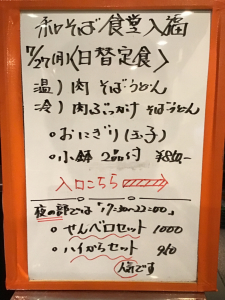 和そば/食堂入福
7/27(月)〈日替定食〉
温）肉 そばうどん
冷）肉ぶっかけ そばうどん
○おにぎり(玉子)
○小鉢 2品付 ¥850-
入口こちら
夜の部では「17:30~22:00」
○せんべロセット 1000
○ハイからセット 960
人気です